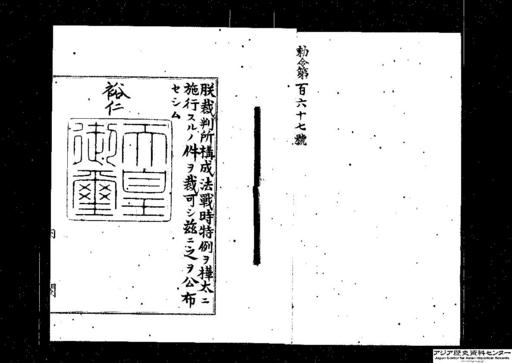 勅令第百六十七號
朕裁判所構成法戰時特例ヲ樺太ニ
施行スルノ件ヲ裁可シ茲ニ之ヲ公布
セシム
裕仁
天皇
御璽
内閣
アジア歴史資料センター
Japan Center for Asian Historical Records